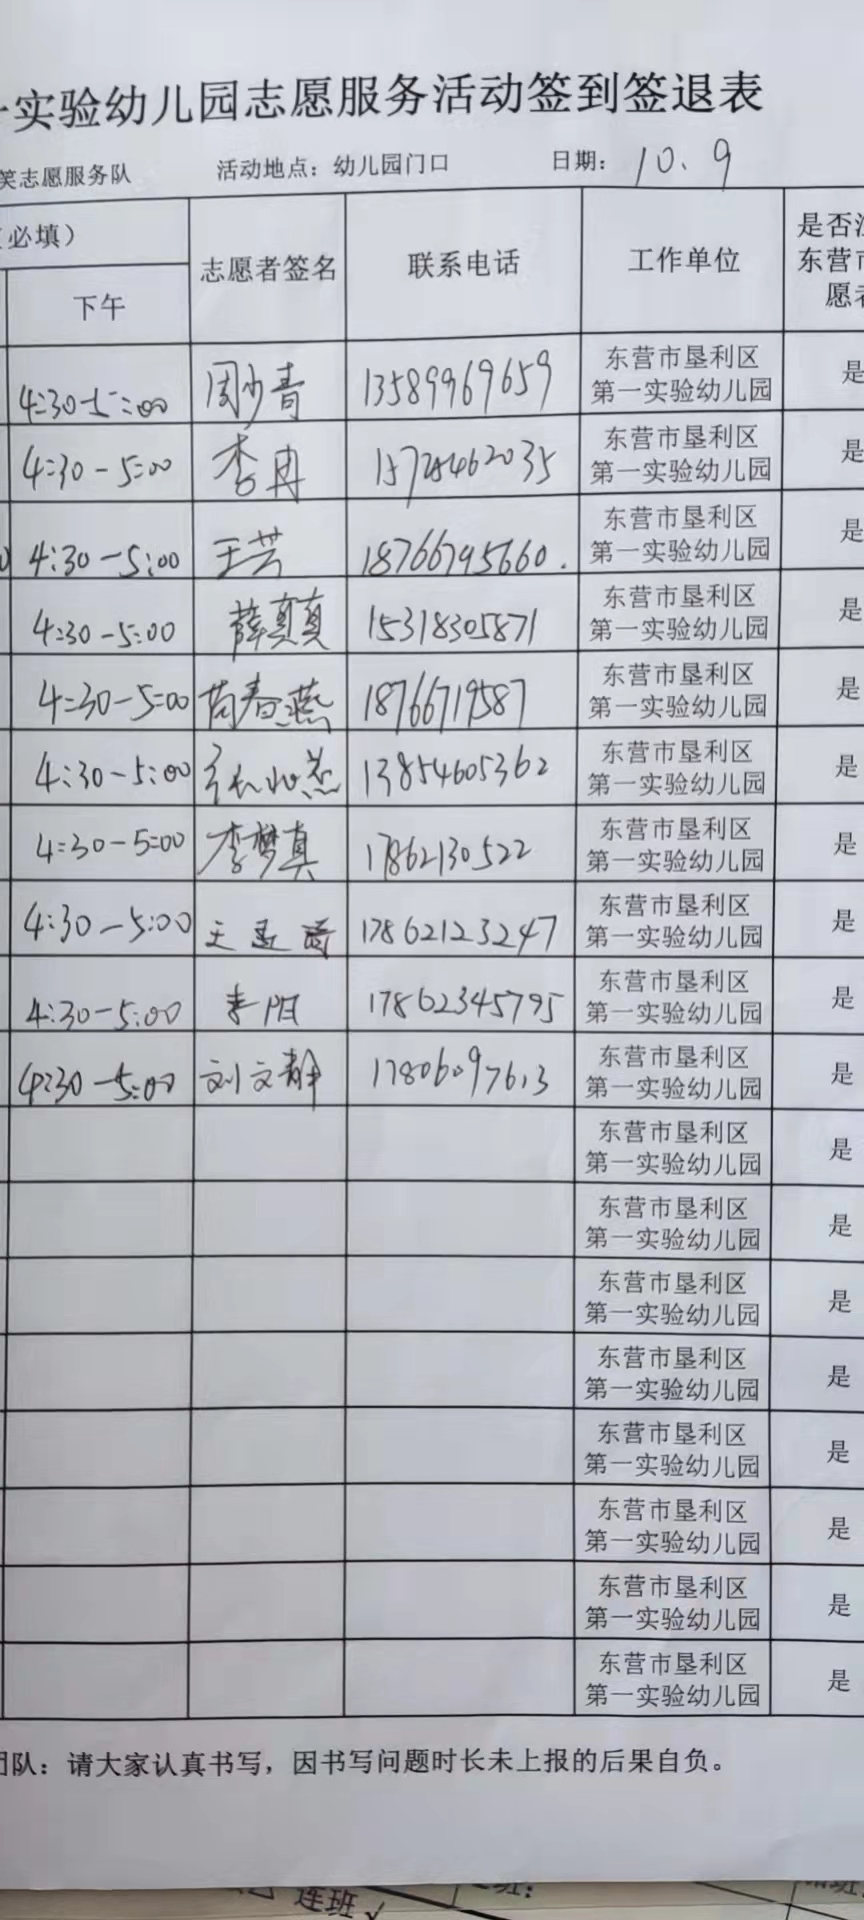 一实验幼儿园志愿服务活动签到签退表
笑志愿服务队 活动地点：幼儿园门口 日期： 10.9
必填） 志愿者签名 联系电话 工作单位 是否
东营市
愿者
下午
4:30-5:00 周少青 13589969659 东营市垦利区 第一实验幼儿园 是
4:30-5:00 李冉 东营市垦利区 第一实验幼儿园 是
4:30-5:00 王芳 18766795660. 东营市垦利区 第一实验幼儿园 是
4:30-5:00 薛真真 15318305871 东营市垦利区 第一实验幼儿园 是
4:30-5:00 苟春燕 18766719587 东营市垦利区 第一实验幼儿园 是
4:30-5:00 13854605362 东营市垦利区 第一实验幼儿园 是
4:30-5:00 李梦真 17862130522 东营市垦利区 第一实验幼儿园 是
4:30-5:00 王 17862123247 东营市垦利区 第一实验幼儿园 是
4:30-5:00 李阳 17862345795 东营市垦利区 第一实验幼儿园 是
4:30-5:00 刘文静 17806097613 东营市垦利区 第一实验幼儿园 是
东营市垦利区 第一实验幼儿园 是
东营市垦利区 第一实验幼儿园 是
东营市垦利区 第一实验幼儿园 是
东营市垦利区 第一实验幼儿园 是
东营市垦利区 第一实验幼儿园 是
东营市垦利区 第一实验幼儿园 是
东营市垦利区 第一实验幼儿园 是
东营市垦利区 第一实验幼儿园 是
团队：请大家认真书写，因书写问题时长未上报的后果自负。
连班√